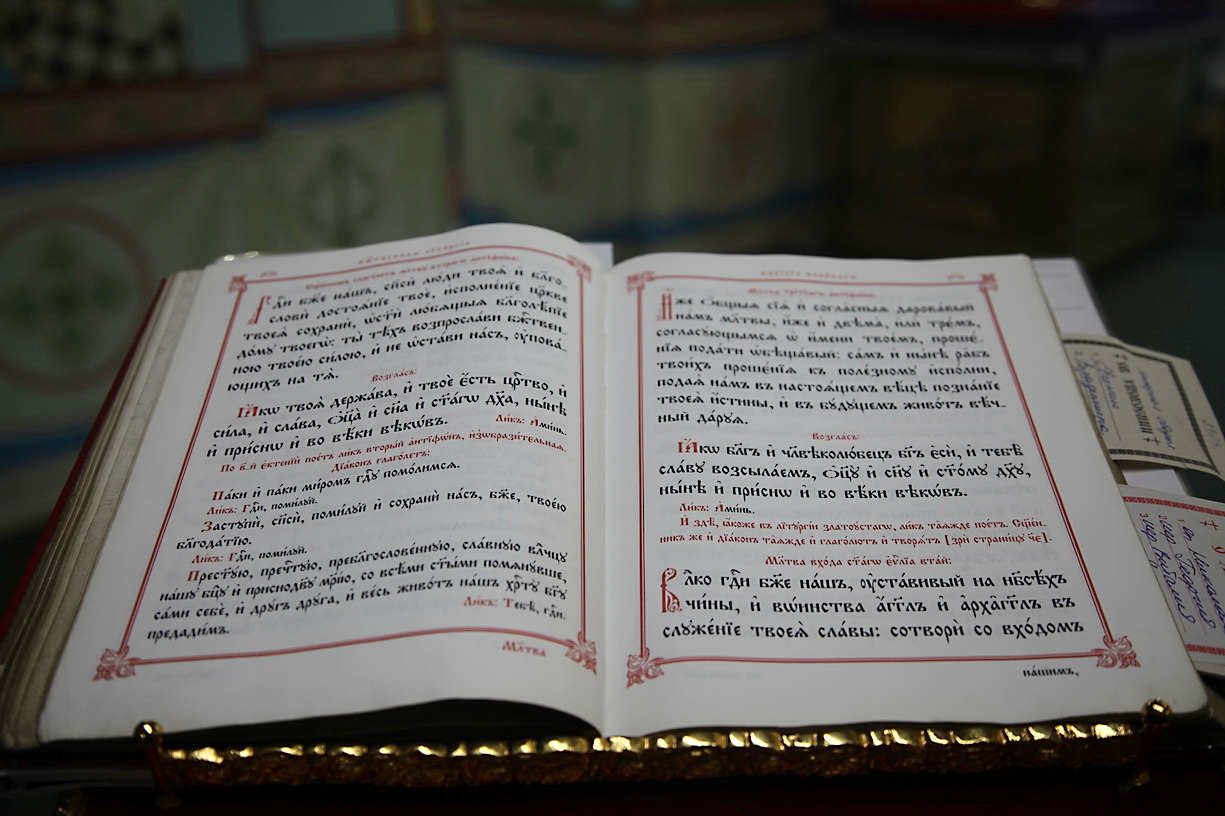 Мл҃тва вторагѡ антїфѡна:
Гдⷭ҇и бж҃е нашъ, сп҃си́ лю́ди твоѧ̑ и҆ благо-
слови́ достоѧ́нїе твоѐ, и҆сполне́нїе цр҃кве
твоеѧ̀ сохранѝ, ѡ҆ст҃ѝ лю́бѧщыѧ благолѣ́пїе
до́мꙋ твоегѡ̀: ты̀ тѣ́хъ возпросла́ви бж҃ттвен-
ною твое́ю си́лою, и҆ не ѡ҆ста́ви на́съ, ᲂу҆пова́-
ющихъ на тѧ̀.
Возгла́съ:
Ꙗ҆́кѡ твоѧ̀ держа́ва, и҆ твоѐ є҆́сть црⷭ҇тво, и҆
си́ла, и҆ сла́ва, ѻ҆ц҃а̀ и҆ сн҃а и҆ ст҃а́гѡ дх҃а, ны́нѣ
и҆ при́снѡ и҆ во вѣ́ки вѣкѡ́въ. Ли́къ: А҆ми́нь.
По в҃-й є҆ктенїѝ пое́тъ ли́къ вторы́й а҆нтїфѡ́нъ, и҆з̾ѡбрази́тельнаѧ.
Дїа́конъ глаго́летъ:
Па́ки и҆ па́ки ми́ромъ гдⷭ҇ꙋ помо́лимсѧ.
Ли́къ: Гдⷭ҇и, поми́лꙋй.
Застꙋпѝ, сп҃сѝ, поми́лꙋй и҆ сохранѝ на́съ, бж҃е, твое́ю
благода́тїю.
Ли́къ: Гдⷭ҇и, поми́лꙋй.
Прест҃ꙋ́ю, пречⷭ҇тꙋю, преблагослове́ннꙋю, сла́внꙋю влⷣчцꙋ
на́шꙋ бц҃ꙋ и҆ приснодв҃ꙋ мр҃і́ю, со всѣ́ми ст҃ы́ми помѧнꙋ́вше,
са́ми себѐ, и҆ дрꙋ́гъ дрꙋ́га, и҆ ве́сь живо́тъ на́шъ хрⷭ҇тꙋ̀ бг҃ꙋ
предади́мъ. Ли́къ: Тебѣ̀, гдⷭ҇и.
Мл҃тва
Мл҃тва тре́тїѧгѡ а҆нтїфѡ́на:
И҆́же ѻ҆́бщыѧ сїѧ̑ и҆ согла̑сныѧ дарова́вый
на́мъ мл҃твы, и҆́же и҆ двѣма̀, и҆лѝ трє́мъ,
согласꙋ́ющымсѧ ѡ҆ и҆́мени твое́мъ, проше́-
нїѧ пода́ти ѡ҆бѣща́вый: са́мъ и҆ ны́нѣ ра̑бъ
твои́хъ прошє́нїѧ къ поле́зномꙋ и҆спо́лни,
подаѧ̀ на́мъ въ настоѧ́щемъ вѣ́цѣ позна́нїе
твоеѧ̀ и҆́стины, и҆ въ бꙋ́дꙋщемъ живо́тъ вѣ́ч-
ный да́рꙋѧ.
Возгла́съ:
Ꙗ҆́кѡ бл҃гъ и҆ чл҃вѣколю́бецъ бг҃ъ є҆сѝ, и҆ тебѣ̀
сла́вꙋ возсыла́емъ, ѻ҆ц҃ꙋ̀ и҆ сн҃ꙋ и҆ ст҃о́мꙋ дх҃ꙋ,
ны́нѣ и҆ при́снѡ и҆ во вѣ́ки вѣкѡ́въ.
Ли́къ: А҆ми́нь.
И҆ здѣ̀, ꙗ҆́коже въ лїтꙋргі́и златоꙋ́стагѡ, ли́къ та̑ѧжде пое́тъ. Сщ҃е́н-
никъ же и҆ дїа́конъ та̑ѧжде и҆ глаго́лютъ и҆ творѧ́тъ [зрѝ страни́цꙋ ч҃є].
Мл҃тва вхо́да ст҃а́гѡ є҆ѵⷢ҇лїа втаѝ:
Влⷣко гдⷭ҇и бж҃е на́шъ, ᲂу҆ста́вивый на нб҃сѣ́хъ
чи́ны, и҆ вѡ́инства а҆́гг҃лъ и҆ а҆рха̑гг҃лъ въ
слꙋже́нїе твоеѧ̀ сла́вы: сотворѝ со вхо́домъ
на́шимъ,